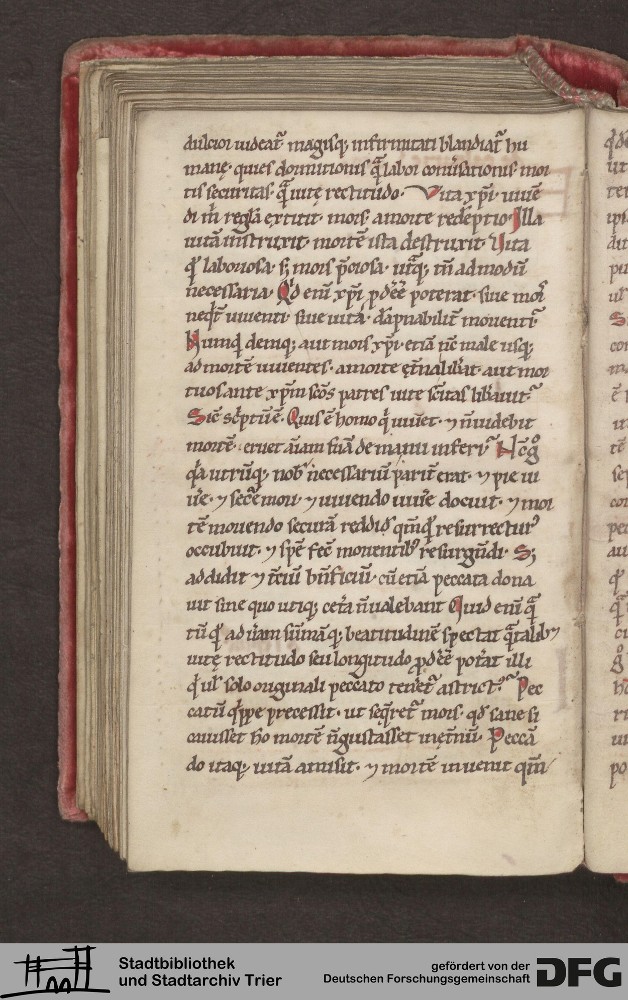 dulcior uideat᷑ magisq; infirmitati blandiat᷑ hu
manę· quies dormitionis q̄ labor conu̓sationis· mor
tis securitas· q̄ uitę rectitudo· Vita xp̄i· uiuē
di m̄ regl̄a extitit· mors· a morte redēptio· Illa
uitā instruxit· mortē ista destruxit· Vita
q̓ laboriosa· s; mors p̄ciosa· ut̓q; tn̄ ad modū
necessaria· Qd̓ eni xp̄i p̄dēe poterat· siue mors
neq̓t uiuenti· siue uita· dāpnabilit̓ morienti·
Nunq̓ deniq; aut mors xp̄i· etiā nc̄ male usq;
ad mortē uiuentes· a morte et̓na lib̓at· aut mor
tuos ante xp̄m sc̄os patres uite sc̄itas lib̓auit·
Sic̄ sc̓ptū ē· Quis ē homo q̓ uiuet· ⁊ n̄ uidebit
mortē· eruet aīam suā de manu inferi· Nc̄ g̊
q̄a utrūq; nob̓ necessariū parit̓ erat· ⁊ pie ui
ue̓· ⁊ sec̄e mori· ⁊ uiuendo uiue̓ docuit· ⁊ mor
tē moriendo securā reddid̓ qm̄ q̓ resurrectur᷒
occubuit· ⁊ spē fec̄ morientib᷒ resurgn̄di· S;
addidit ⁊ tc̓iū bn̄ficiū· cū etiā peccata dona
uit sine quo utiq; cet̓a n̄ ualebant Quid eni q̄
tū q̓ ad uȩram sūmāq; beatitudinē spectat q̄talib᷒
uitę rectitudo seu longitudo p̄dēe pot̓at illi
q̓ ul̓ solo originali peccato teneret᷑ astrict᷒· Pec
catū q̓ppe precessit· ut seq̓ret᷑ mors· qd̓ sane si
cauisset hō mortē n̄ gustasset inęt̓nū· Peccā
do itaq; uitā amisit· ⁊ mortē inuenit qm̄
Stadtbibliothek
und Stadtarchiv Trier
gefördert von der
Deutschen Forschungsgemeinschaft
DFG